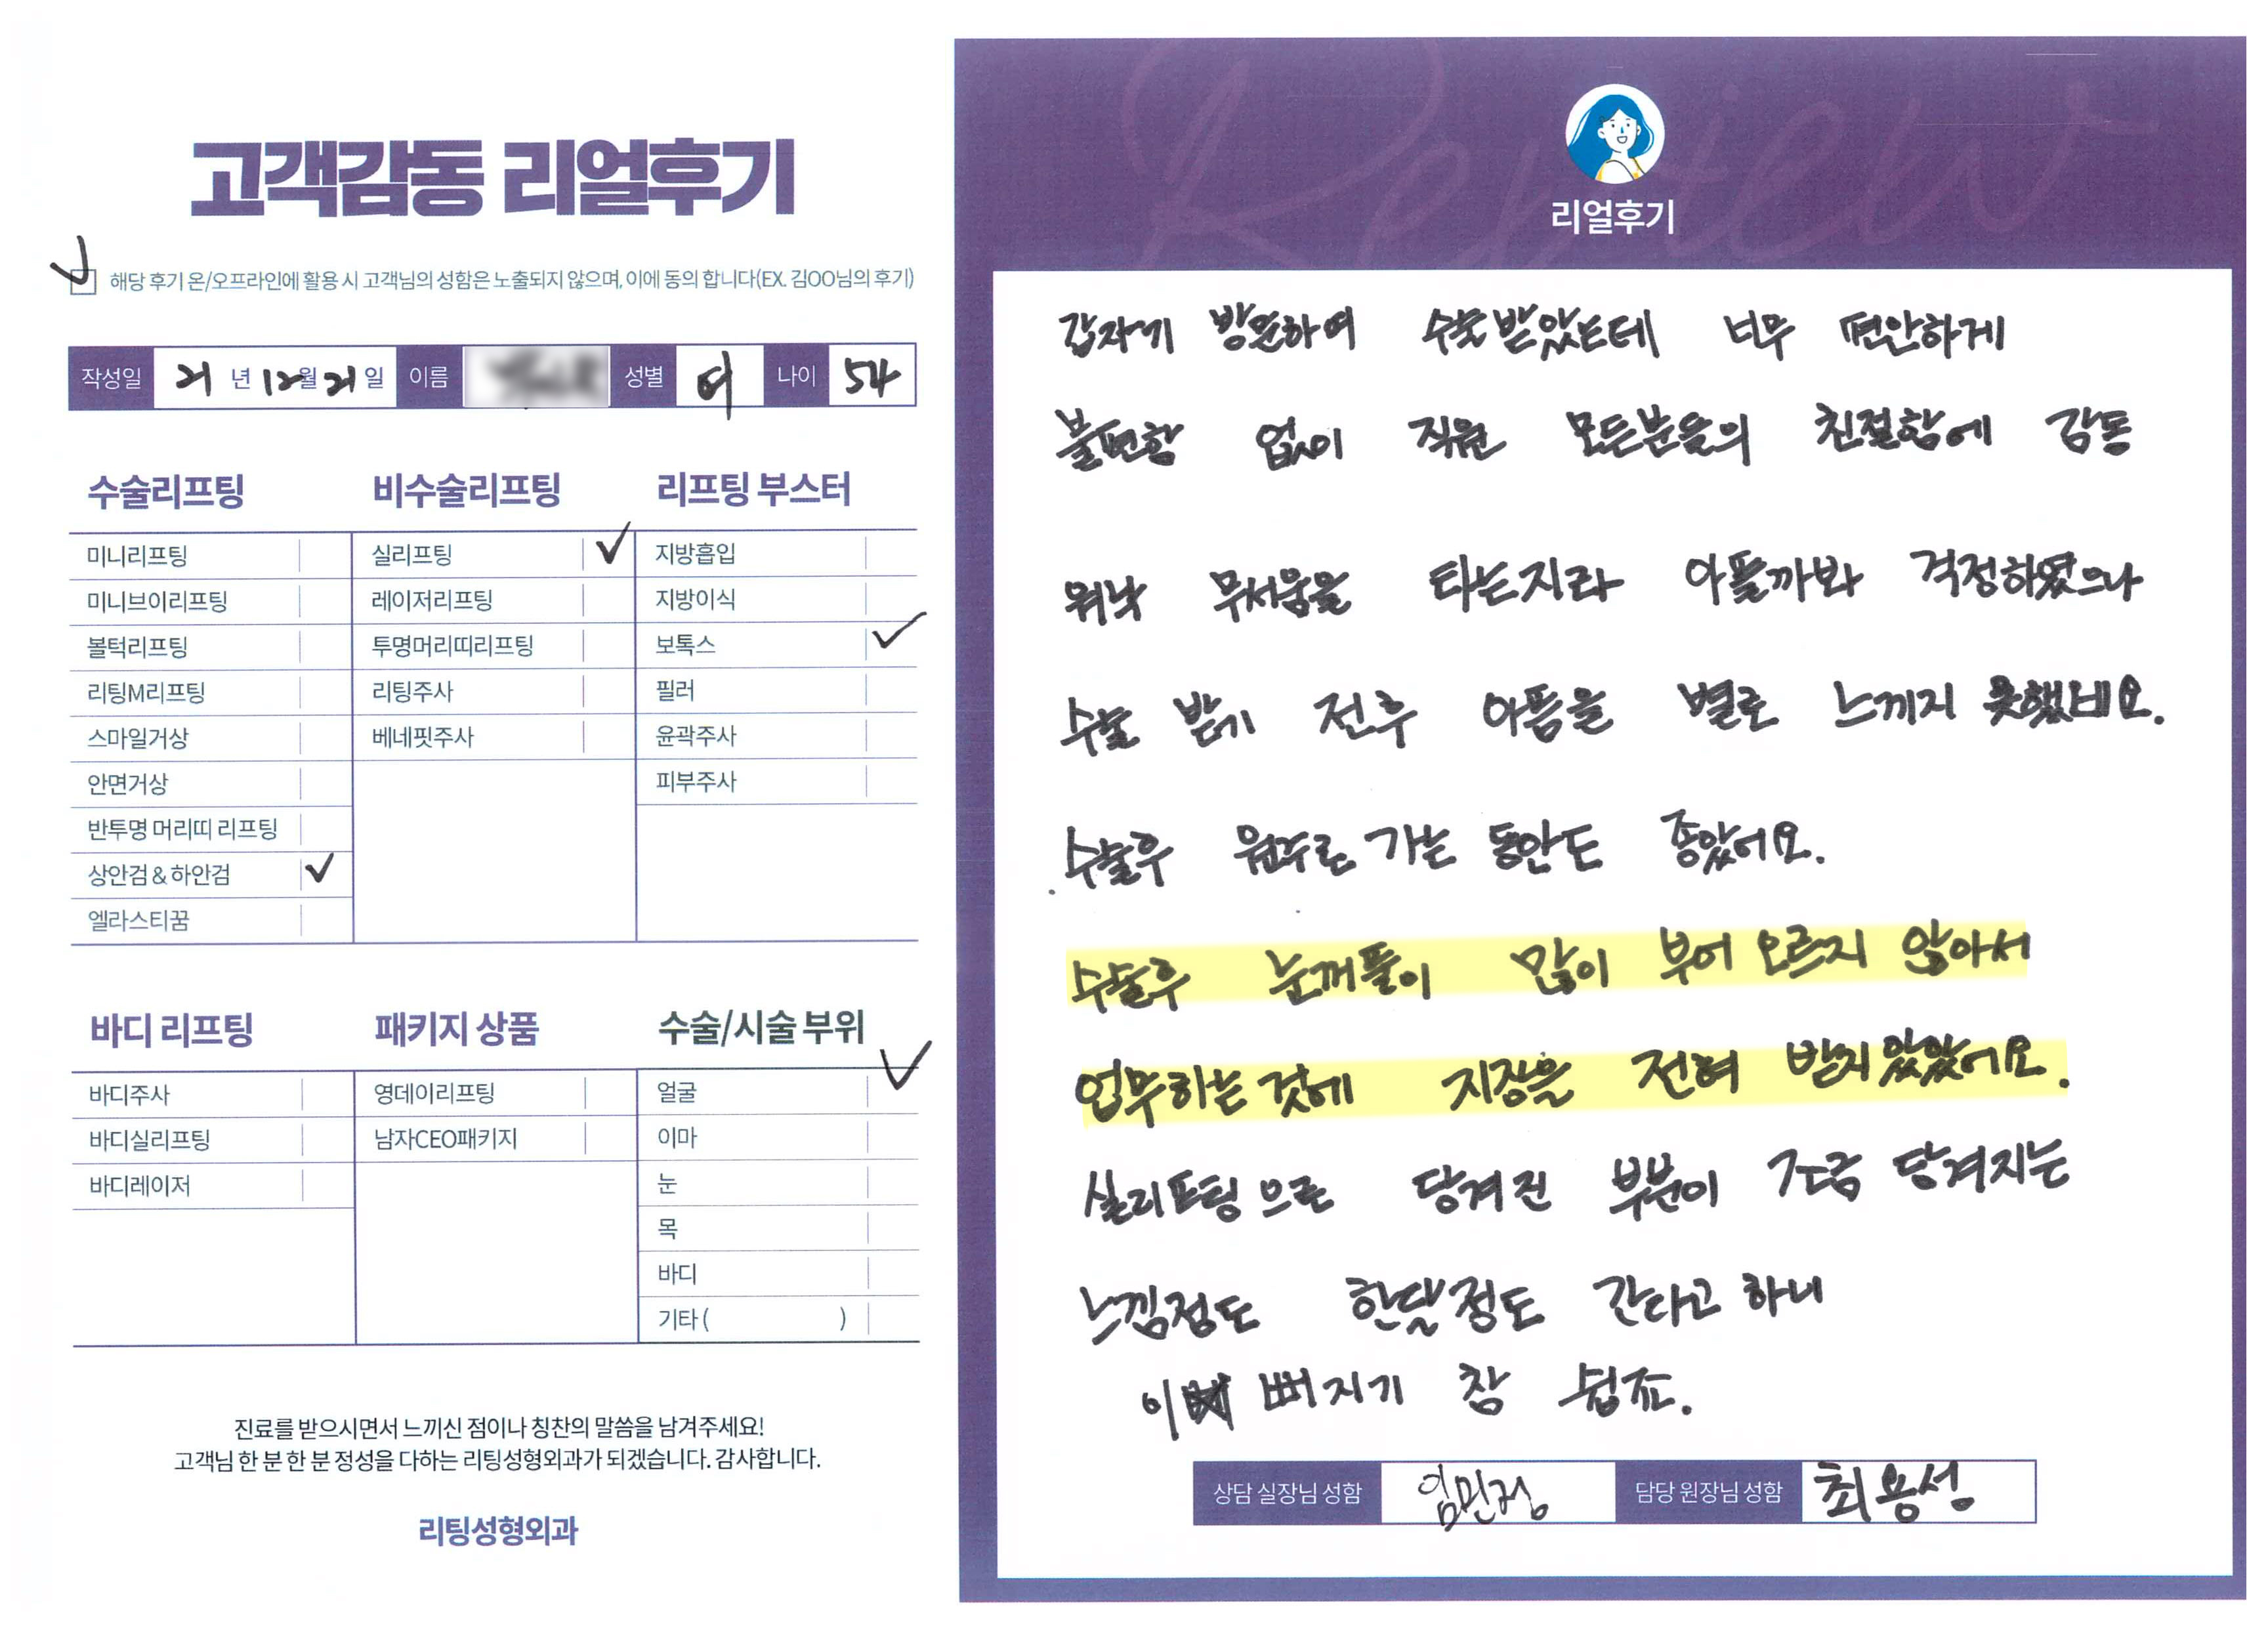 고객감동 리얼후기
해당 후기 온/오프라인에 활용 시 고객님의 성함은 노출되지 않으며, 이에 동의 합니다(EX. 김OO님의 후기)
작성일 21 년 12 월 21 일 이름 성별 여 나이 54
수술리프팅
미니리프팅
미니브이리프팅
볼턱리프팅
리팅M리프팅
스마일거상
안면거상
반투명 머리띠 리프팅
상안검 & 하안검
엘라스티꿈
비수술리프팅
실리프팅
레이저리프팅
투명머리띠리프팅
리팅주사
베네핏주사
리프팅 부스터
지방흡입
지방이식
보톡스
필러
윤곽주사
피부주사
바디 리프팅
바디주사
바디실리프팅
바디레이저
패키지 상품
영데이리프팅
남자CEO패키지
수술/시술 부위
얼굴
이마
눈
목
바디
기타 ( )
진료를 받으시면서 느끼신 점이나 칭찬의 말씀을 남겨주세요!
고객님 한 분 한 분 정성을 다하는 리팅성형외과가 되겠습니다. 감사합니다.
리팅성형외과
Review
리얼후기
갑자기 방문하여 수술받았는데 너무 편안하게
불편함 없이 직원 모든분들의 친절함에 감동
워낙 무서움을 타는지라 아플까봐 걱정하였으나
수술 받기 전후 아픔을 별로 느끼지 못했네요.
수술후 원주로 가는 동안도 좋았어요.
수술후 눈꺼풀이 많이 부어 오르지 않아서
업무하는 것에 지장을 전혀 받지 않았어요.
실리프팅으로 당겨진 부분이 조금 당겨지는
느낌정도 한달정도 간다고 하니
이 뻐지기 참 쉽죠.
상담 실장님 성함 임민정 담당 원장님 성함 최용성